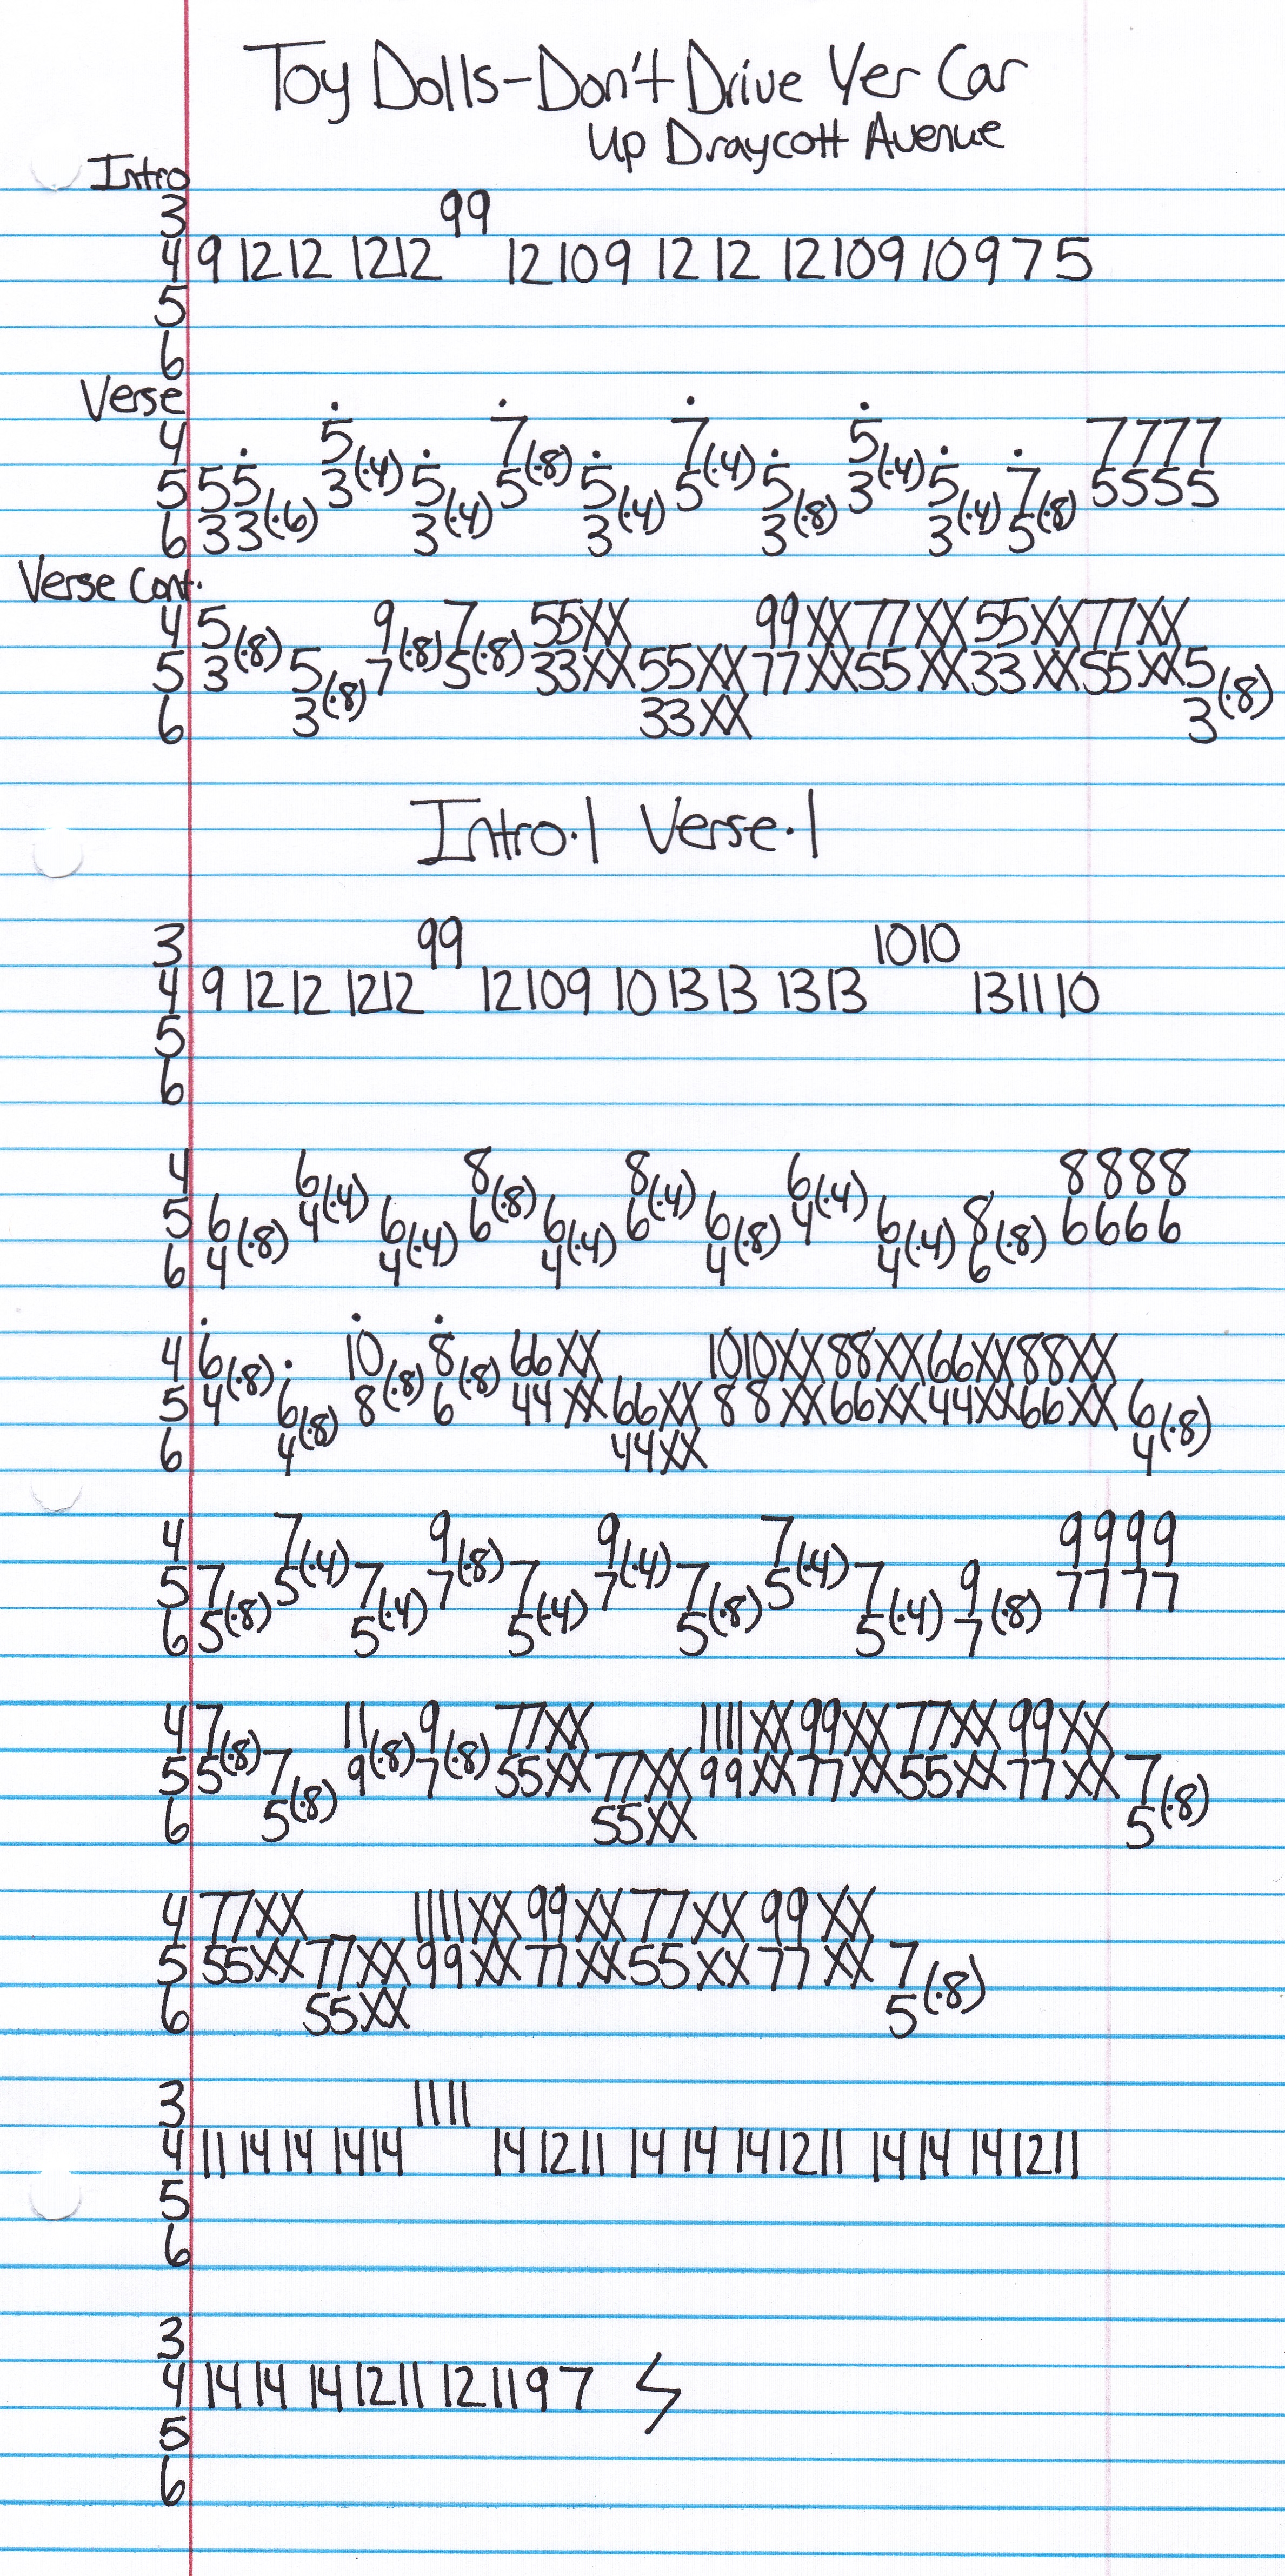 Toy Dolls-Don't Drive Yer Car
Up Draycott Avenue
Intro
3 99
4 9 12 12 1212 12109 12 12 12109 10975
5
6
Verse
4 5(·4) 7(·8) 7(·4) 5(·4) 7777
5 55 3 5 5 5 5 5 3 5 7 5555
6 33(·6) 3(·4) 3(·4) 3(·8) 3(·4) 5(·8)
Verse Cont.
4 5(·8) 9(·8) 7(·8) 55XX 99XX 77XX 55XX 77XX
5 3 5 7 5 33XX 55XX 77XX 55XX 33XX 55XX 5
6 3(·8) 33XX 3(·8)
Intro·1 Verse·1
3 99 1010
4 9 12 12 1212 12109 10 13 13 1313 131110
5
6
4 6(·4) 8(·8) 8(·4) 6(·4) 8888
5 6 4 6 6 6 6 6 4 6 8 6666
6 4(·8) 4(·4) 4(·4) 4(·8) 4(·4) 6(·8)
4 6(·8) 10(·8) 8(·8) 66XX 1010XX 88XX 66XX 88XX
5 4 6 8 6 44XX 66XX 88XX 66XX 44XX 66XX 6
6 4(·8) 44XX 4(·8)
4 7(·4) 9(·8) 9(·4) 7(·4) 9999
5 7 5 7 7 7 7 7 5 7 9 7777
6 5(·8) 5(·4) 5(·4) 5(·8) 5(·4) 7(·8)
4 7(·8) 11(·8) 9(·8) 77XX 1111XX 99XX 77XX 99XX
5 5 7 9 7 55XX 77XX 99XX 77XX 55XX 77XX 7
6 5(·8) 55XX 5(·8)
4 77XX 1111XX 99XX 77XX 99XX
5 55XX 77XX 99XX 77XX 55XX 77XX 7
6 55XX 5(·8)
3 1111
4 11 14 14 1414 141211 14 14 141211 1414 141211
5
6
3
4 1414 141211 121197
5
6